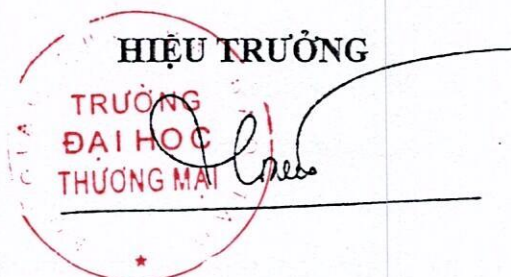 HIỆU TRƯỞNG
TRƯỜNG
ĐẠI HỌC
THƯƠNG MẠI